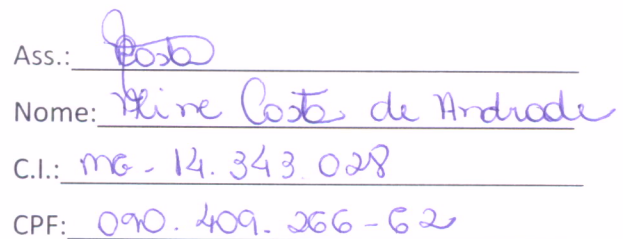 Ass.: Costa
Nome: Aline Costa de Andrade
C.I.: MG- 14.343.028
CPF: 090.409.266-62